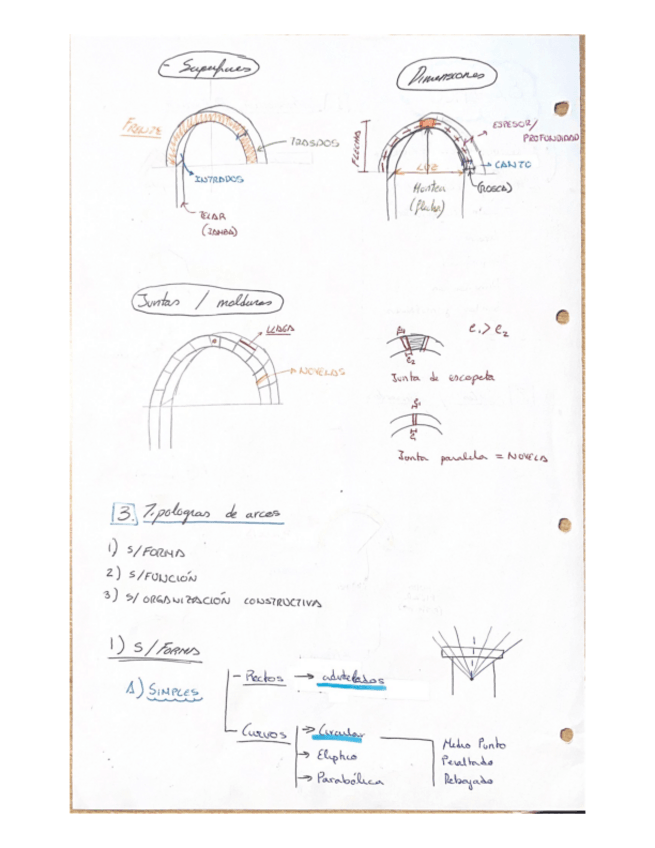 - Superficies
Dimensiones
FRENTE
TRASDOS
INTRADOS
TELAR
(JAMBA)
FLECHA
ESPESOR/
PROFUNDIDAD
CANTO
(ROSCA)
LUZ
Montea
(flecha)
Juntas / molduras
LLAGA
e₁ > e₂
e₁
e₂
Junta de escopeta
Junta paralela =
3. Tipologías de arcos
1) S/FORMA
2) S/FUNCIÓN
3) S/ORGANIZACIÓN CONSTRUCTIVA
1) S/FORMA
A) SIMPLES
- Rectos → adintelados
- Curvos → Circular
→ Elíptico
→ Parabólica
Medio Punto
Peraltado
Rebajado